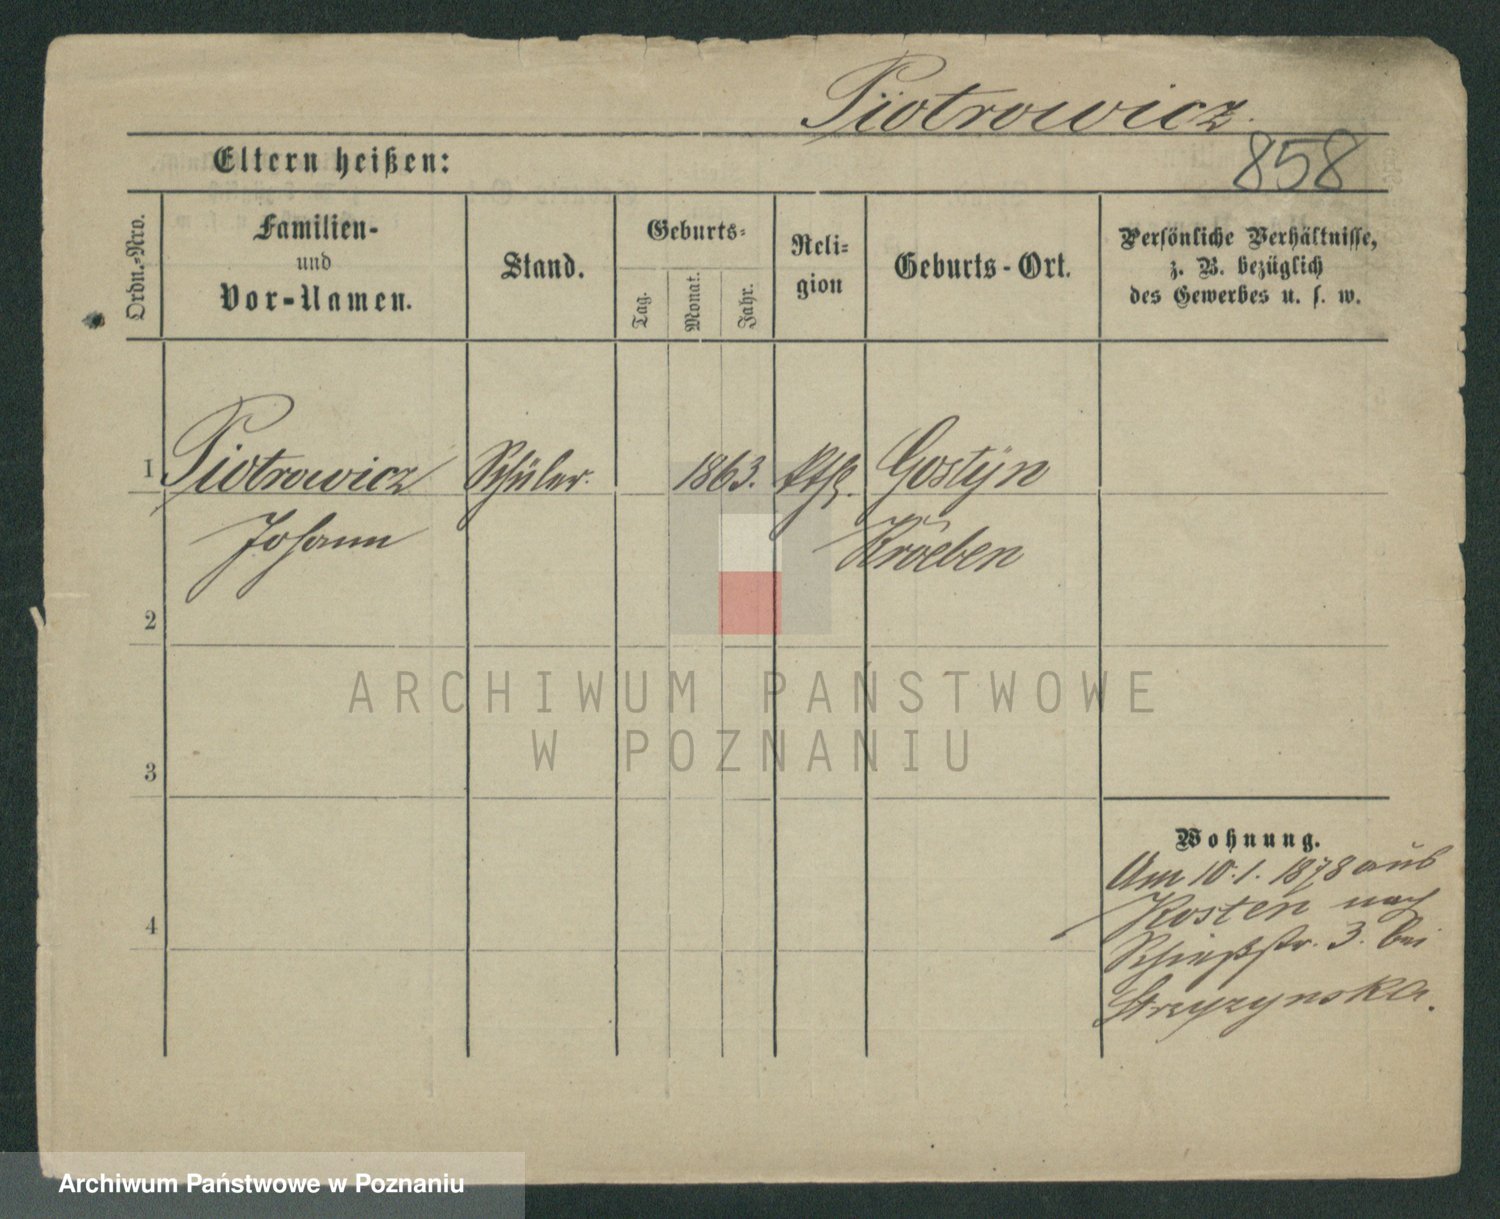 Piotrowicz.
858
Eltern heißen:
Ordn.-Nro.
Familien-
und
Vor-Namen.
Stand.
Geburts-
Tag.
Monat.
Jahr.
Reli-
gion
Geburts-Ort.
Persönliche Verhältnisse,
z. B. bezüglich
des Gewerbes u. s. w.
1 Piotrowicz Schüler. 1863. kth. Gostÿn
Johann Kroeben
2
3
4
Wohnung.
Am 10.1.1878 aus
Kosten nach
Schießstr. 3. bei
ARCHIWUM PAŃSTWOWE
W POZNANIU
Archiwum Państwowe w Poznaniu